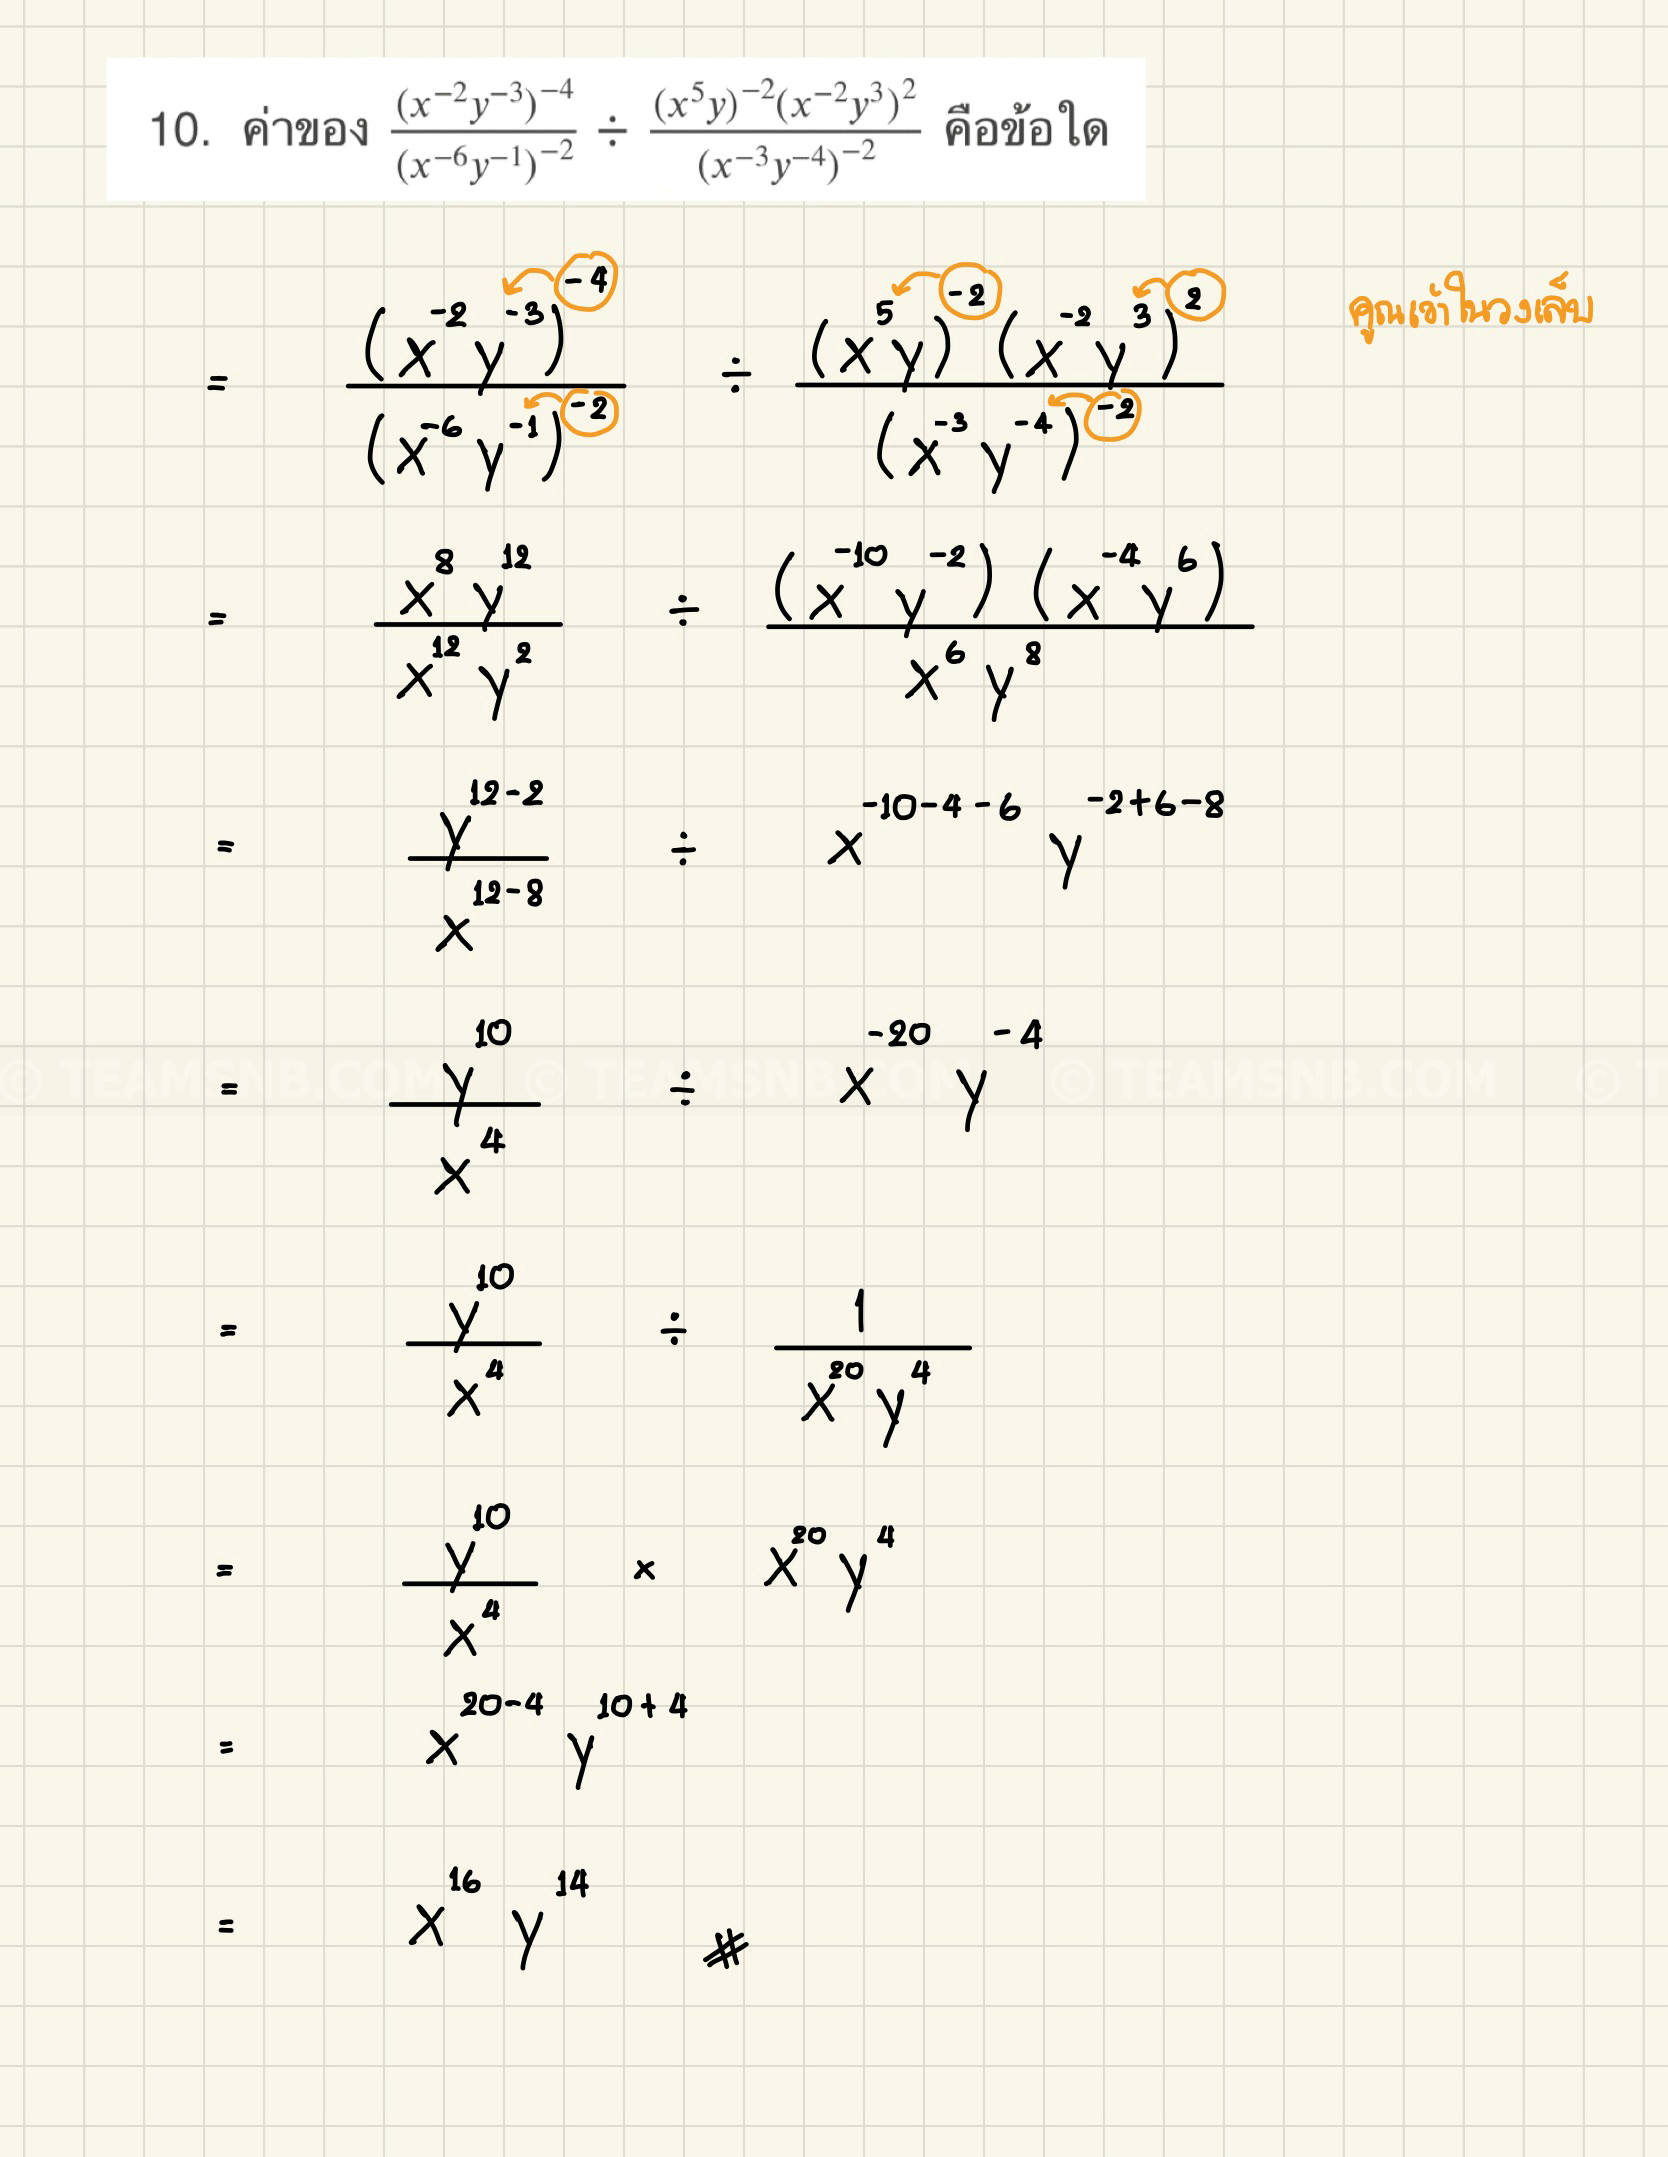 10. ค่าของ \frac{(x^{-2}y^{-3})^{-4}}{(x^{-6}y^{-1})^{-2}} ÷ \frac{(x^{5}y)^{-2}(x^{-2}y^{3})^{2}}{(x^{-3}y^{-4})^{-2}} คือข้อใด
= \frac{(x^{-2}y^{-3})^{-4}}{(x^{-6}y^{-1})^{-2}} ÷ \frac{(x^{5}y)^{-2}(x^{-2}y^{3})^{2}}{(x^{-3}y^{-4})^{-2}} คูณเข้าในวงเล็บ
= \frac{x^{8}y^{12}}{x^{12}y^{2}} ÷ \frac{(x^{-10}y^{-2})(x^{-4}y^{6})}{x^{6}y^{8}}
= \frac{y^{12-2}}{x^{12-8}} ÷ x^{-10-4-6} y^{-2+6-8}
= \frac{y^{10}}{x^{4}} ÷ x^{-20} y^{-4}
© TEAMSNB.COM © TEAMSNB.COM © TEAMSNB.COM © T
= \frac{y^{10}}{x^{4}} ÷ \frac{1}{x^{20}y^{4}}
= \frac{y^{10}}{x^{4}} × x^{20}y^{4}
= x^{20-4} y^{10+4}
= x^{16} y^{14} #